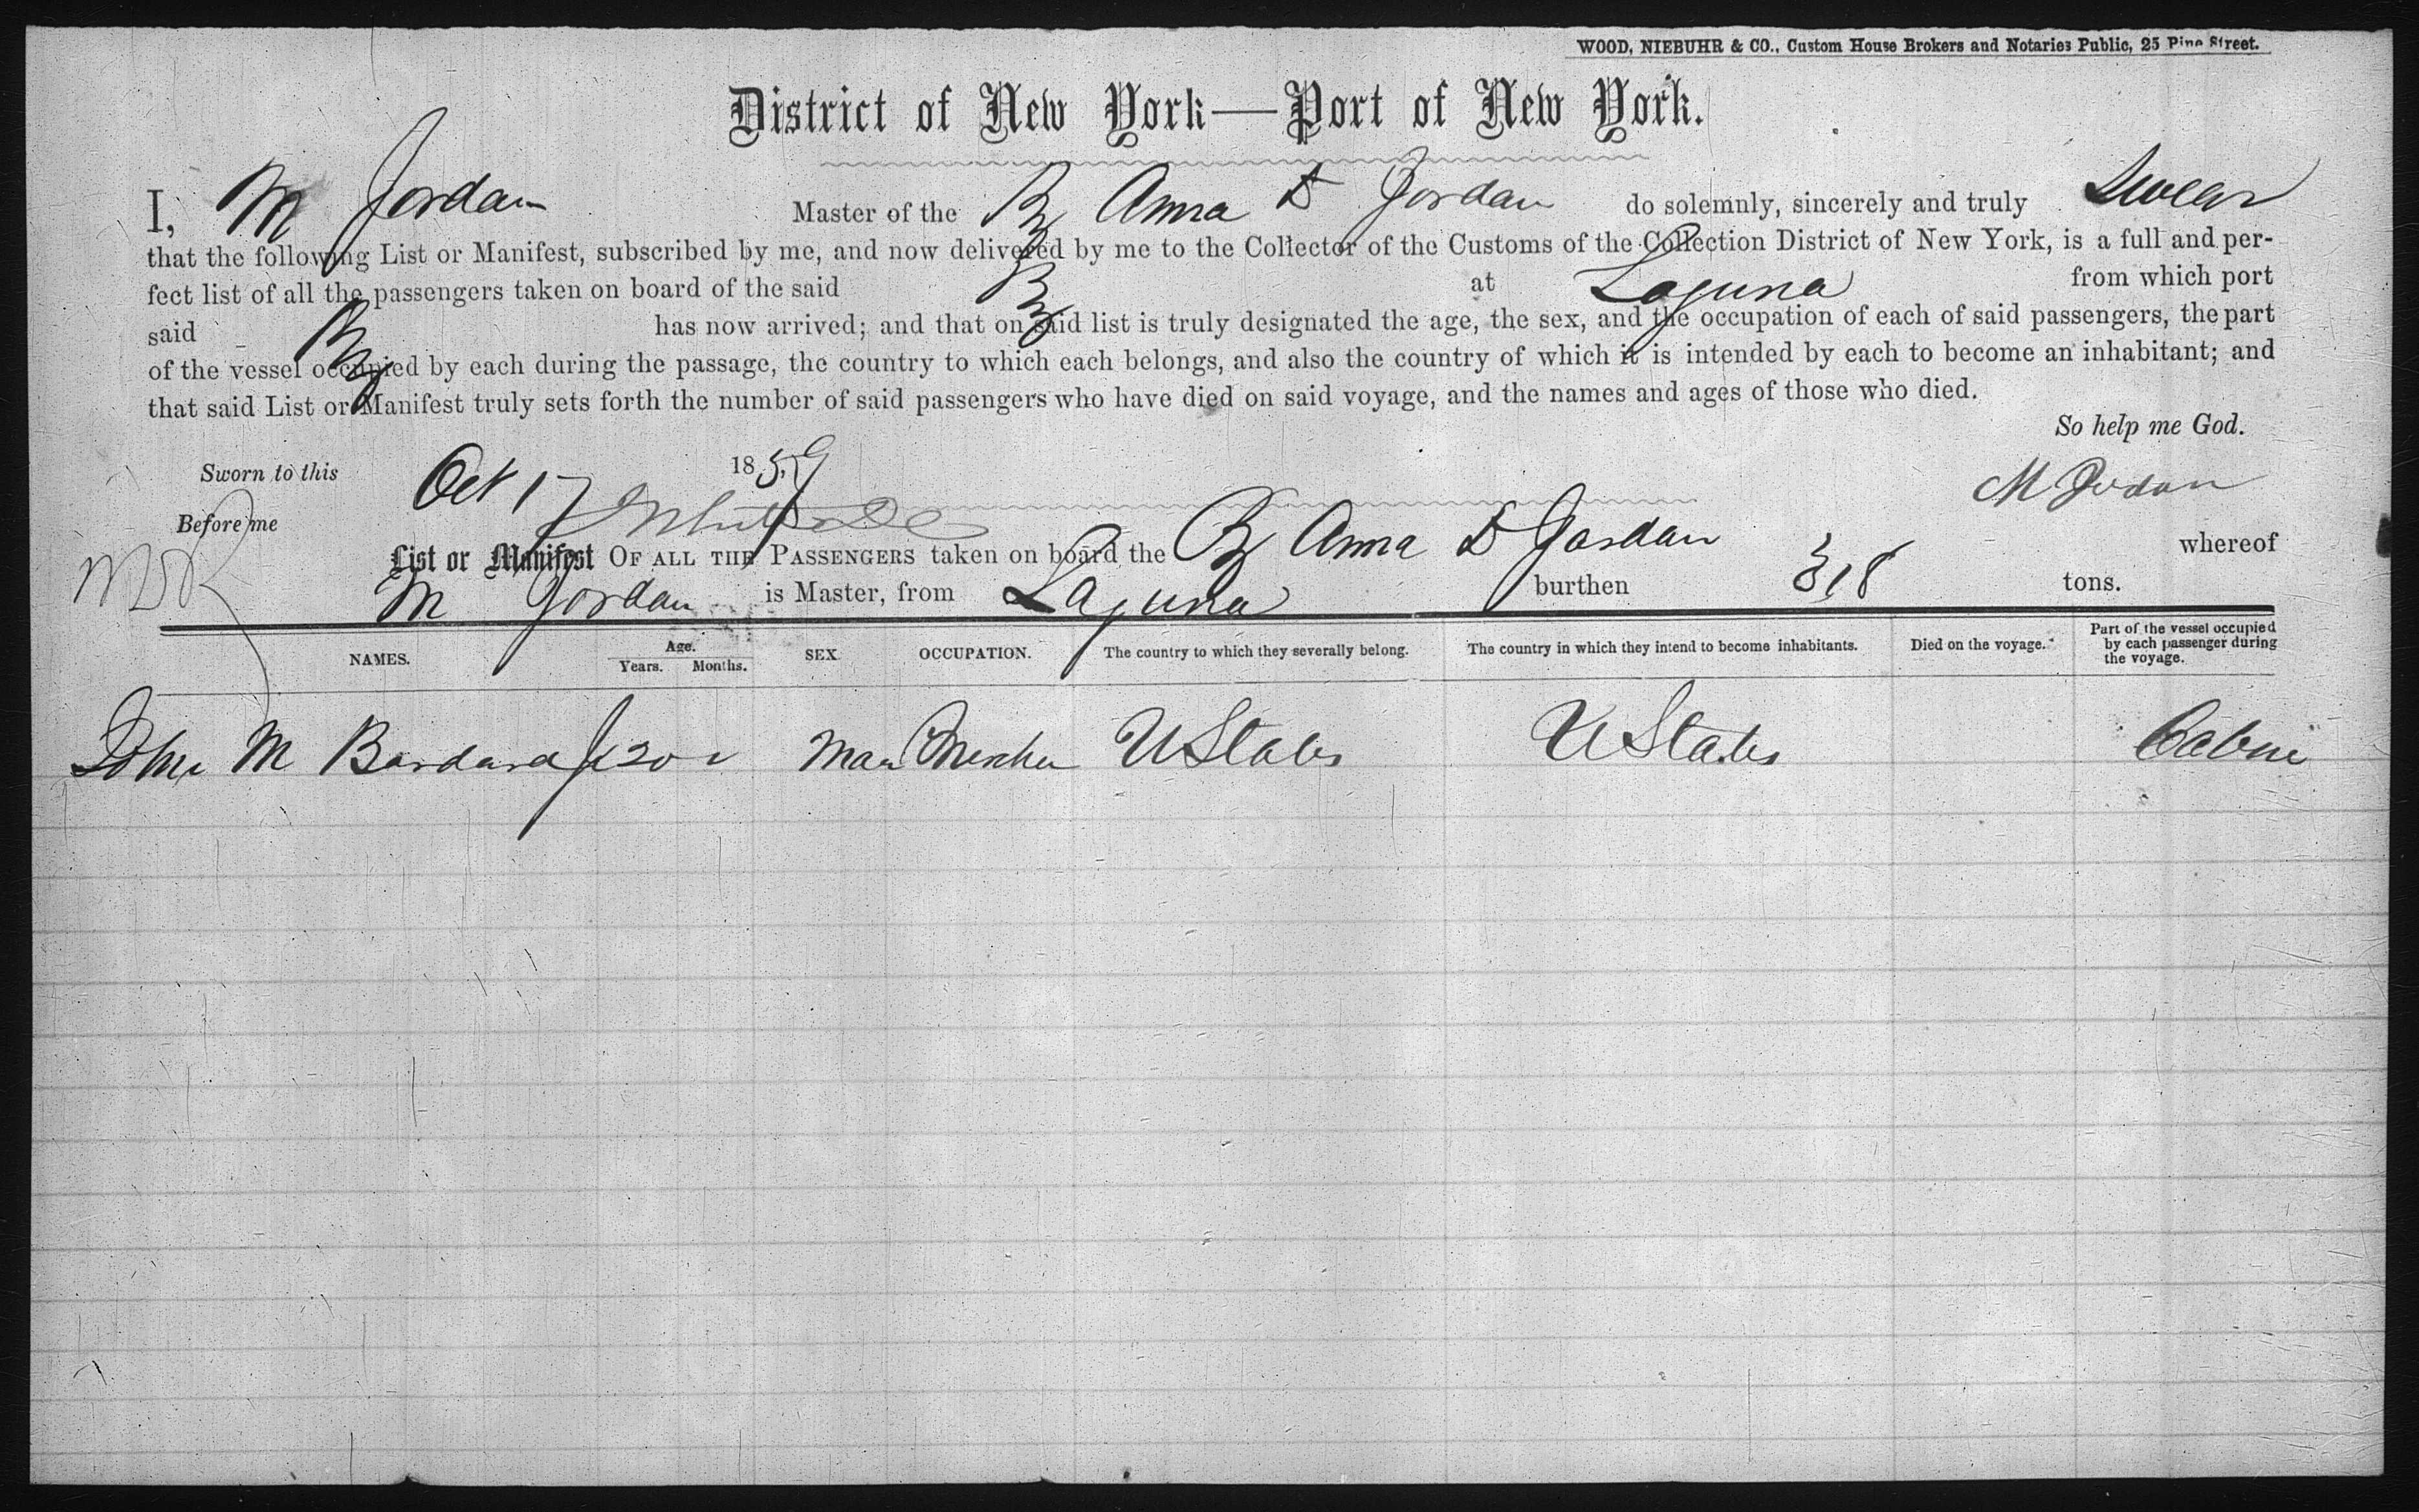 WOOD, NIEBUHR & CO., Custom House Brokers and Notaries Public, 25 Pine Street.
District of New York—Port of New York.
I, M Jordan Master of the Bg Anna D Jordan do solemnly, sincerely and truly Swear
that the following List or Manifest, subscribed by me, and now delivered by me to the Collector of the Customs of the Collection District of New York, is a full and per-
fect list of all the passengers taken on board of the said Bg at Laguna from which port
said Bg has now arrived; and that on said list is truly designated the age, the sex, and the occupation of each of said passengers, the part
of the vessel occupied by each during the passage, the country to which each belongs, and also the country of which it is intended by each to become an inhabitant; and
that said List or Manifest truly sets forth the number of said passengers who have died on said voyage, and the names and ages of those who died.
So help me God.
Sworn to this Oct 17 1859
M Jordan
Before me
List or Manifest OF ALL THE PASSENGERS taken on board the Bg Anna D Jordan whereof
M Jordan is Master, from Laguna burthen 318 tons.
NAMES. Age. Years. Months. SEX. OCCUPATION. The country to which they severally belong. The country in which they intend to become inhabitants. Died on the voyage. Part of the vessel occupied by each passenger during the voyage.
John M 20 Man U States U States